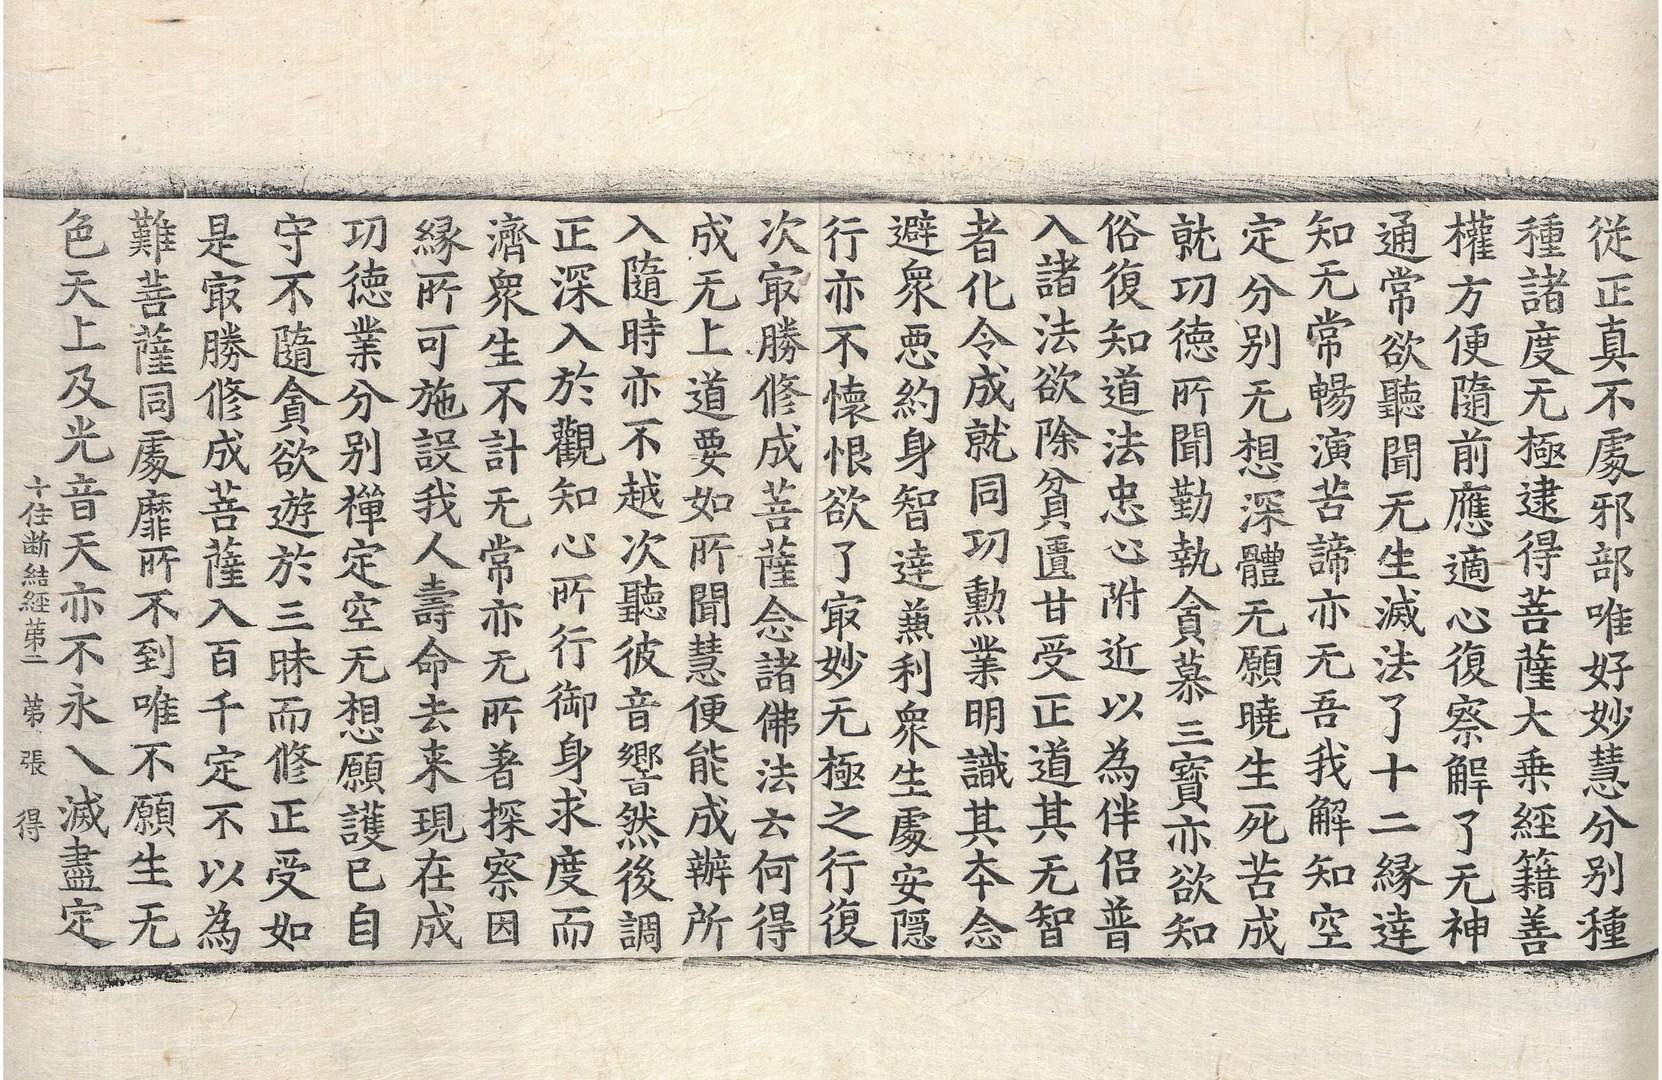 従正真不處邪部唯好妙慧分別種
種諸度无極逮得菩薩大乗經籍善
權方便隨前應適心復察解了无神
通常欲聽聞无生滅法了十二縁達
知无常暢演苦諦亦无吾我解知空
定分別无想深體无願曉生死苦成
就功德所聞勤執貪慕三寶亦欲知
俗復知道法忠心附近以為伴侣普
入諸法欲除貧匱甘受正道其无智
者化令成就同功勲業明識其夲念
避衆惡約身智達兼利衆生處安隱
行亦不懐恨欲了㝡妙无極之行復
次㝡勝修成菩薩念諸佛法云何得
成无上道要如所聞慧便能成辦所
入隨時亦不越次聽彼音響然後調
正深入於觀知心所行御身求度而
濟衆生不計无常亦无所著探察因
縁所可施設我人壽命去来現在成
功德業分別禪定空无想願護已自
守不隨貪欲遊於三昧而修正受如
是㝡勝修成菩薩入百千定不以為
難菩薩同處靡所不到唯不願生无
色天上及光音天亦不永入滅盡定
十住断結經苐二 苐 張 得